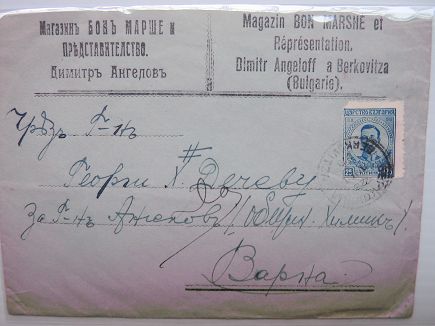 Магазинъ БОНЪ МАРШЕ и
ПРѢДСТАВИТЕЛСТВО.
Димитръ Ангеловъ
Magazin BON MARSHE et
Réprésentation.
Dimitr Angeloff a Berkovitza
(Bulgarie).
ЦАРСТВО БЪЛГАРИЯ
25
Чрѣзъ Г-нъ
Георги Х. Дечевъ
За Г-нъ Ангеловъ
Варна